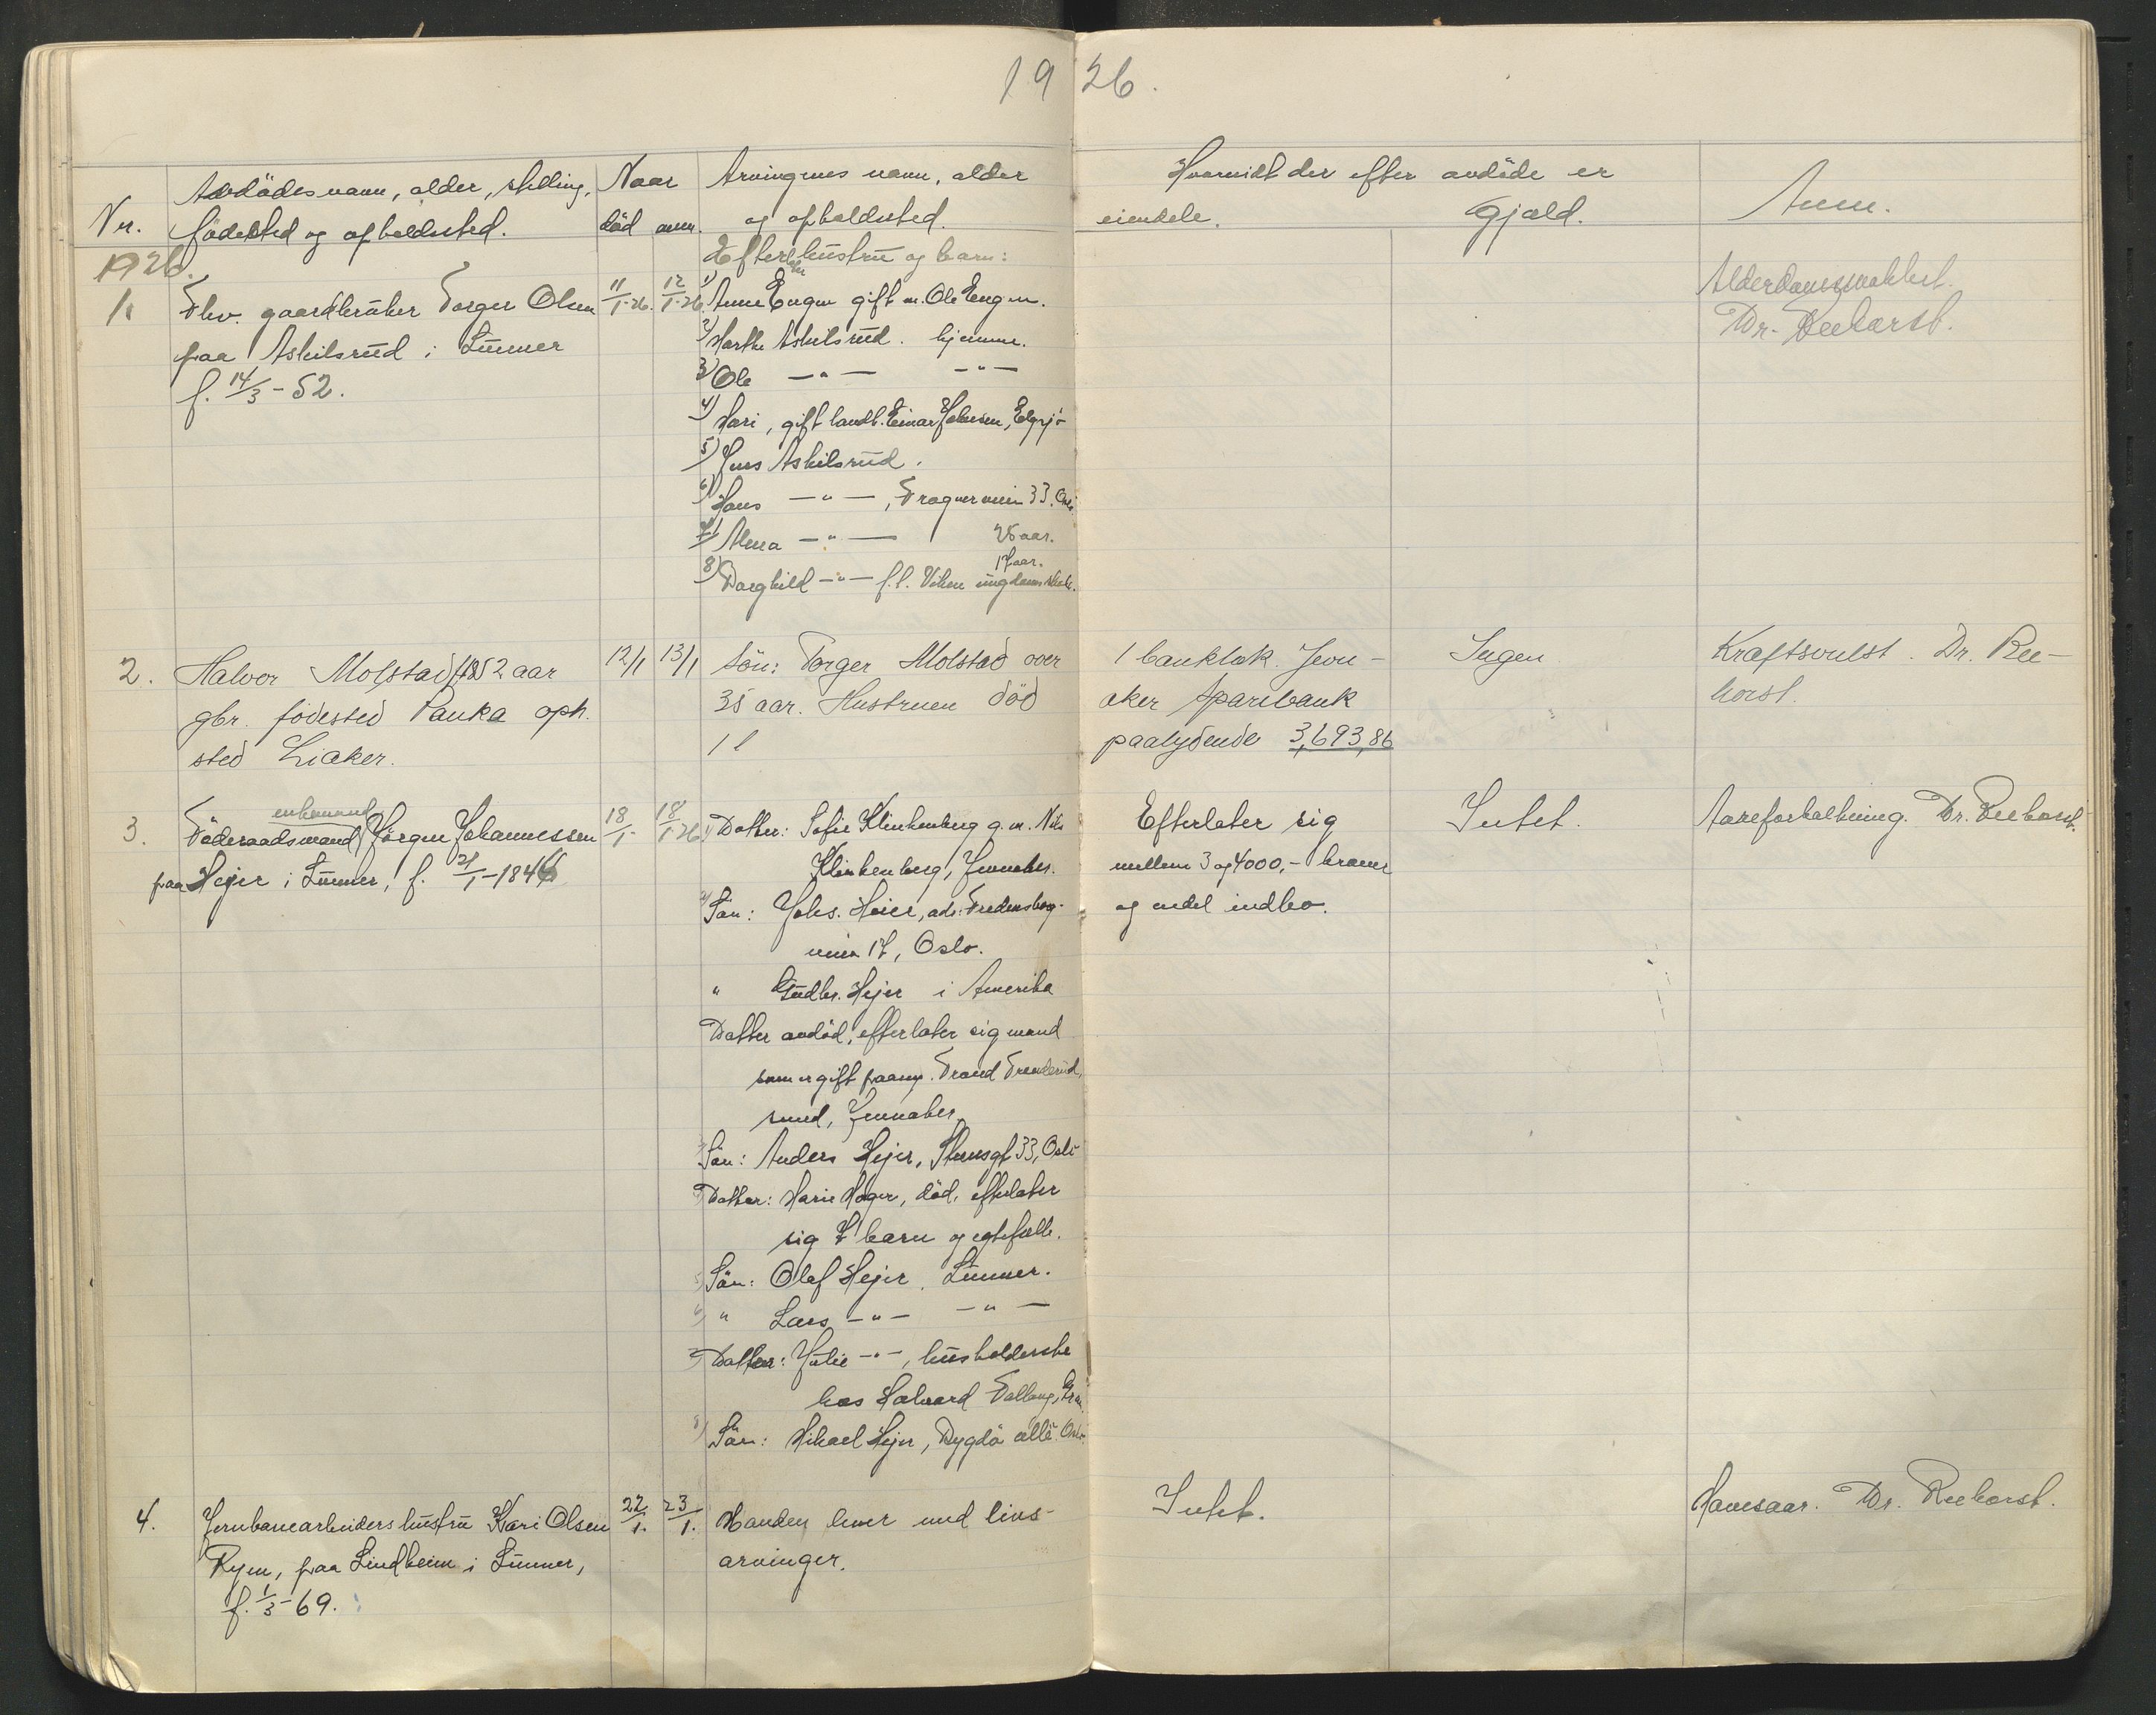 1926.
Nr.
Avdödes navn, alder, stilling,
födested og opholdssted.
Naar
död anm.
Arvingenes navn, alder
og opholdssted.
Hvorvidt der efter avdöde er
eiendele. Gjæld.
Anm.
1926.
1.
Fhv. gaardbruker Torger Olsen
paa Askilsrud i Lunner
f. 14/3-52.
11/1-26.
12/1-26.
Efterl. hustru og barn:
1) Anne Engen gift m. Ole Engen.
2) Marthe Askilsrud. hjemme.
3) Ole —"— —"—
4) Mari, gift landb. Einar Johnsen, Elgsjö
5) Jens Askilsrud.
6) Hans —"—, Frognerveien 33. Oslo
7) Alma —"— 28 aar.
17 aar.
8) Borghild —"— f.t. Viken ungdomsskole.
Alderdomssvakhet.
Dr. Reehorst.
2.
Halvor Molstad 1852 aar
gbr. födested Pauka oph.
sted Liaker.
12/1
13/1
Sön: Torger Molstad over
35 aar. Hustruen död
1 bankbok Jevn-
aker Sparebank
paalydende 3,693,86
Ingen
Kraftsvulst. Dr. Ree-
horst.
3.
enkemand
Föderaadsmand Jörgen Johannessen
paa Heier i Lunner, f. 21/1-1846
18/1-
18/1-26
1) Datter: Sofie Klinkenberg g.m. Nils
Klinkenberg, Jevnaker.
2) Sön: Johs. Heier, adr: Fredensborg-
veien 17, Oslo.
" Gudbr. Hejer i Amerika
Datter avdöd, efterlater sig mand
som er gift paany. Trond
sund, Jevnaker.
Sön: Anders Hejer, 33, Oslo
Datter: Marie Hager, död, efterlater
sig 7 barn og egtefælle.
5) Sön: Olaf Hejer, Lunner.
6) " Lars —"— —"—
7) Datter: Julie —"—, husholderske
hos Halvard Tallang, Gran
8) Sön: Mikael Hejer, Bygdö allé. Oslo.
Efterlater sig
mellem 3 og 4000,- kroner
og endel indbo.
Intet.
Aareforkalkning. Dr. Reehorst.
4.
Jernbanearbeiders hustru Kari Olsen
Ryen, paa Lindheim i Lunner,
f. 1/3-69.
22/1.
23/1.
Manden lever med livs-
arvinger.
Intet.
Mavesaar. Dr. Reehorst.